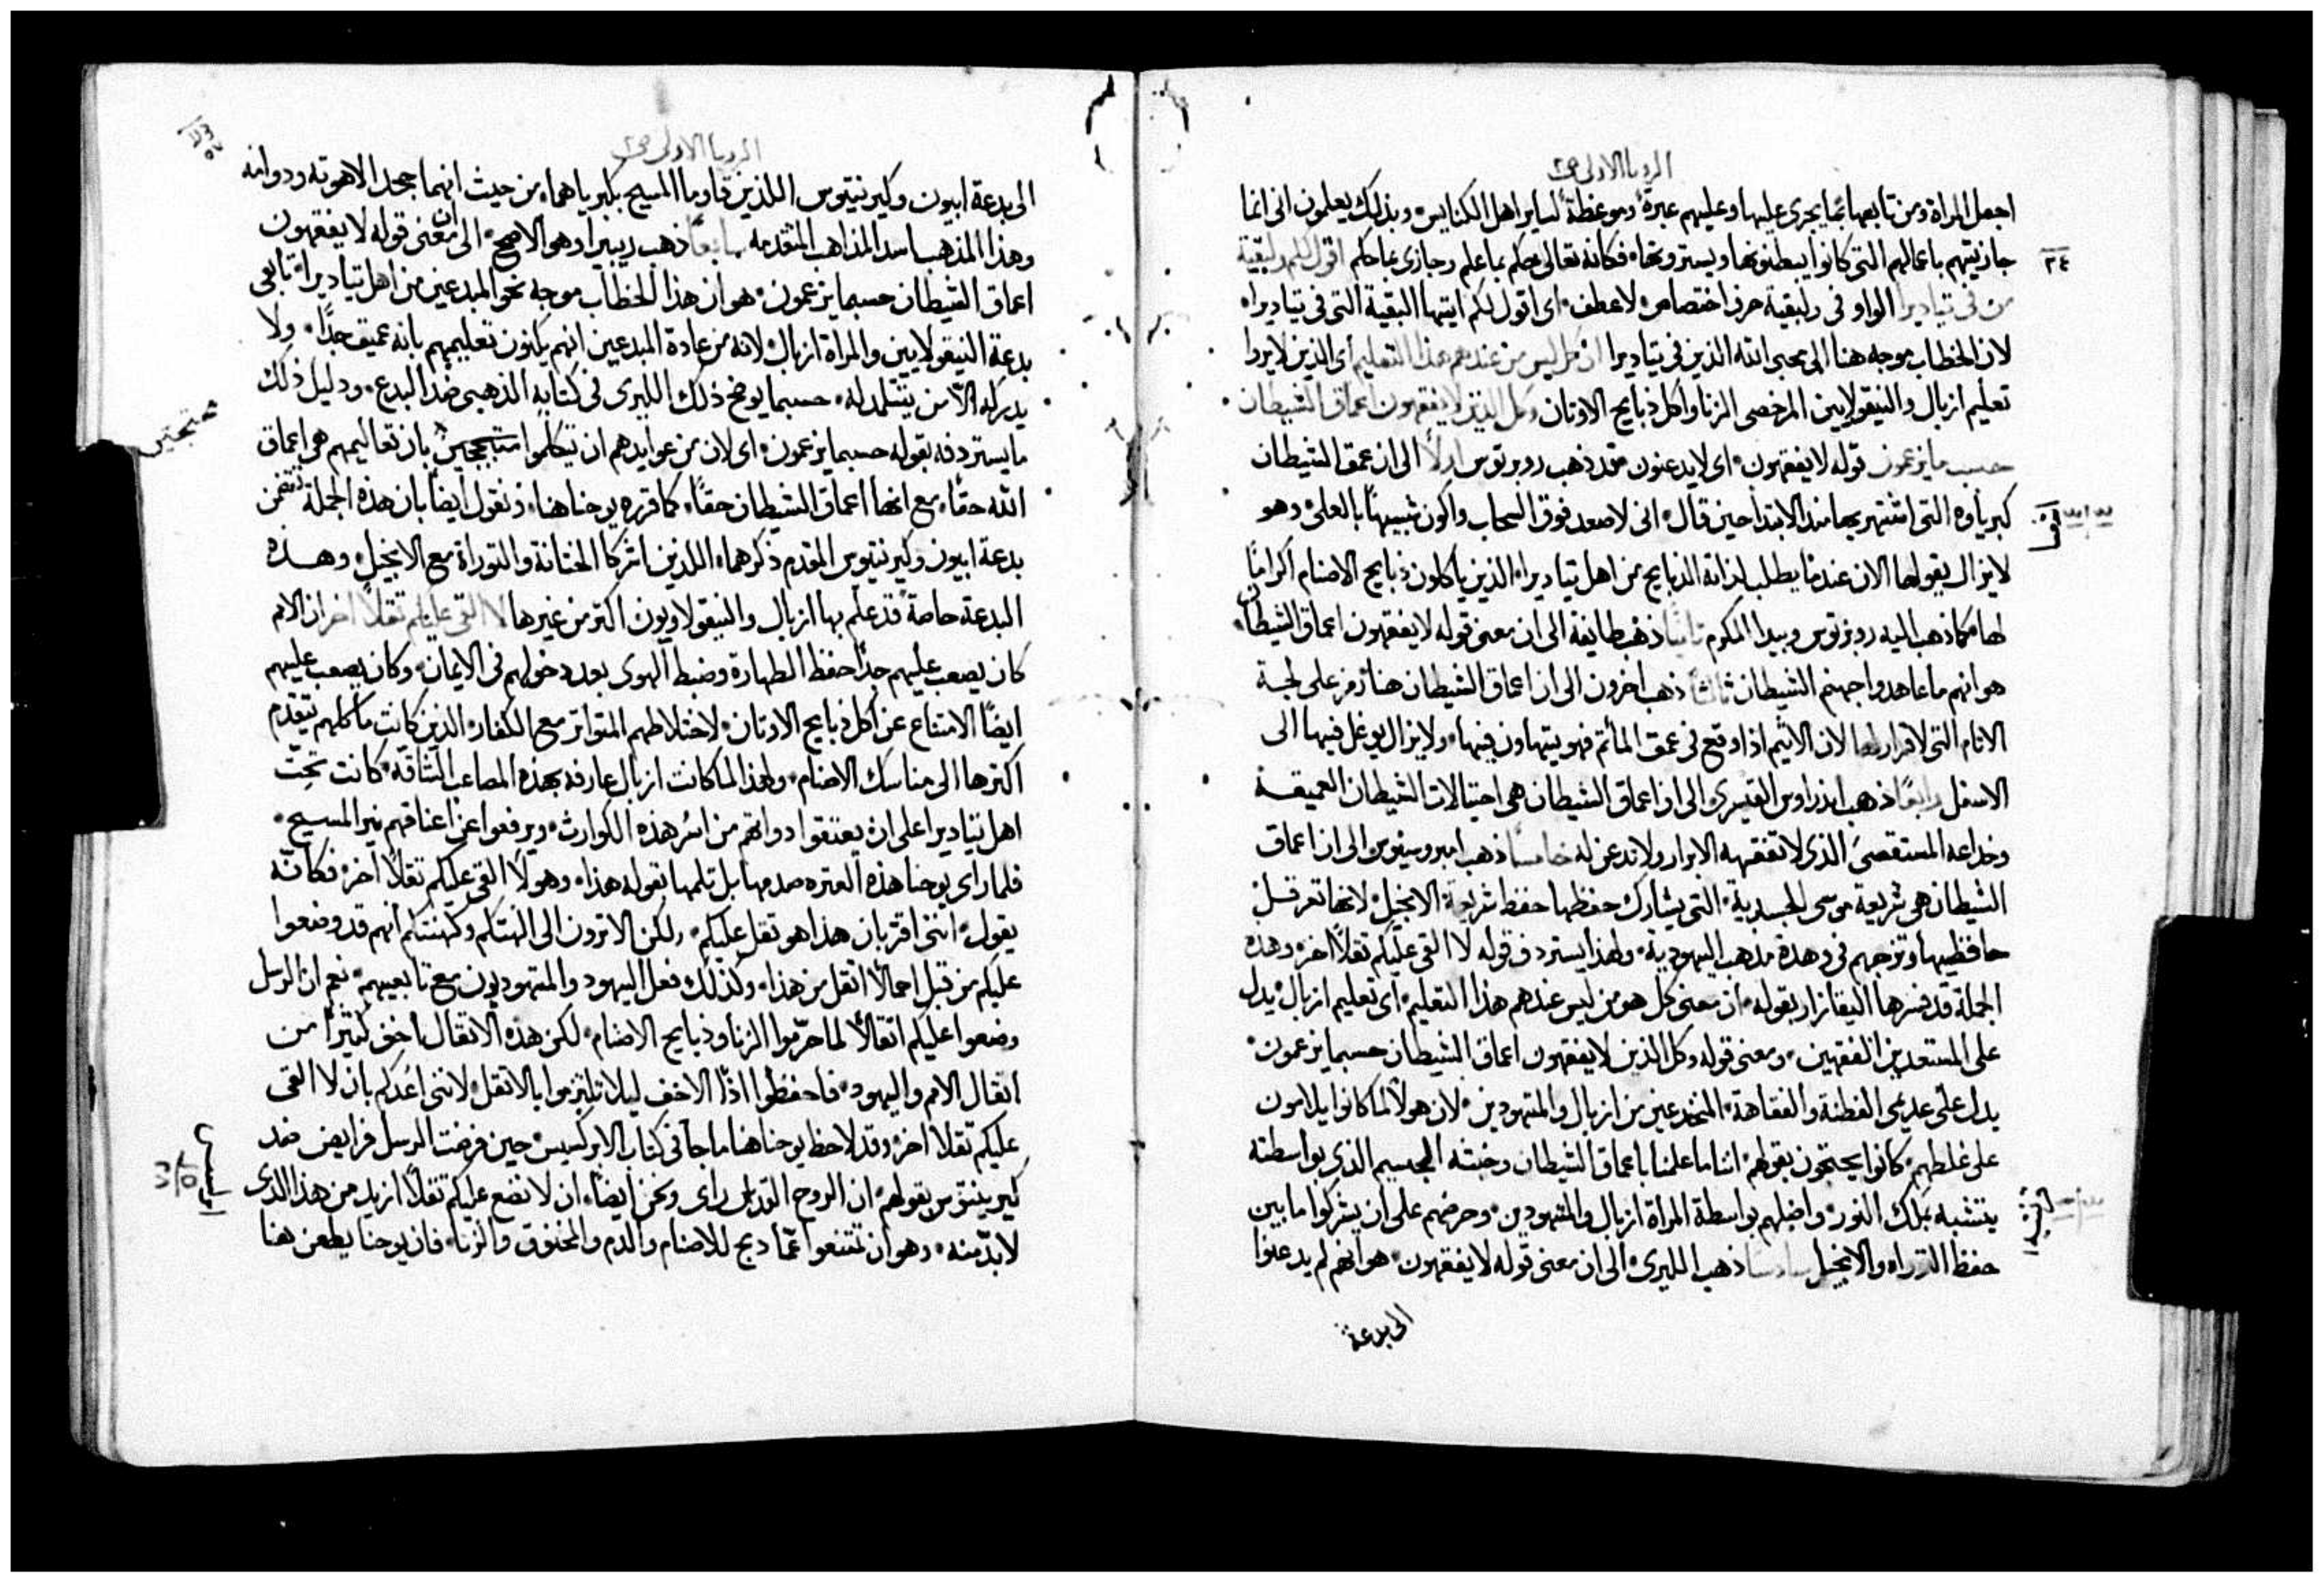 الرويا الاولى ص٢
اجعل المراة ومن تابعها بما يجرى عليها وعليهم عبرةً وموعظةً لساير اهل الكنايس وبذلك يعلمون انى انما
جازيتهم باعمالهم التى كانوا يبطنونها ويسترونها فكانه تعالى حكم بما علم وجازى بما حكم اقول لكم ولبقية
٢٤
من فى تياديرا الواو فى ولبقية حرف اختصاص لا عطف اى اقول لكم ايتها البقية التى فى تياديرا
لان الخطاب موجه هنا الى محبى الله الذين فى تياديرا ان كل ليس من عندهم هذا التعليم اى الذين لا يردا
تعليم ازبال والنيقولايين المرخصى الزنا واكل ذبايح الاوثان وكل الذين لا يفقهون اعماق الشيطان
حسب ما يزعمون قوله لا يفقهون اى لا يدعنون فقد ذهب روبرتوس اولاً الى ان عمق الشيطان
كبرياوه التى اشتهر بها منذ الابتدا حين قال انى لاصعد فوق السحاب واكون شبيهاً بالعلى وهو
لا يزال يقولها الان عندما يطلب لذاته الذبايح من اهل تياديرا الذين ياكلون ذبايح الاصنام اكراماً
لها كما ذهب اليه روبرتوس وبيدا المكرم ثانياً ذهب طايفة الى ان معنى قوله لا يفقهون اعماق الشيطان
هو انهم ما عاهدوا جهنم الشيطان ثالثاً ذهب اخرون الى ان اعماق الشيطان هنا ترمز على لجة
الاثام التى لا قرار لها لان الاثيم اذا وقع فى عمق المأثم فهو يتهاون فيها ولا يزال يوغل فيها الى
الاسفل رابعاً ذهب اندراوس القيسرى الى ان اعماق الشيطان هى احتيالات الشيطان العميقة
وخداعه المستقصى الذى لا تفقهه الابرار ولا تدعن له خامساً ذهب امبروسيوس الى ان اعماق
الشيطان هى شريعة موسى الجسدية التى يشارك حفظها حفظ شريعة الانجيل لانها تعرقل
حافظيها وتزجهم فى وهدة مذهب اليهودية ولهذا يستردف قوله لا القى عليكم ثقلاً اخر وهذه
الجملة قد فسرها اليقازار بقوله ان معنى كل هو من ليس عندهم هذا التعليم اى تعليم ازبال يدل
على المستعدين الفقهين ومعنى قوله وكل الذين لا يفقهون اعماق الشيطان حسبما يزعمون
يدل على عدمى الفطنة والفقاهة المنخدعين من ازبال والمتهودين لان هولا لما كانوا يلامون
على غلطهم كانوا يحتجون بقولهم اننا ما علمنا باعماق الشيطان وخبثه الجسيم الذى بواسطته
يتشبه بملك النور واضلهم بواسطة المراة ازبال والمتهودين وحرضهم على ان يشركوا ما بين
حفظ التوراه والانجيل سادساً ذهب الليرى الى ان معنى قوله لا يفقهون هو انهم لم يدعنوا
الى بدعة
الرويا الاولى ص٢
الى بدعة ابيون وكيرنتيوس اللذين قاوما المسيح بكبرياهما من حيث انهما جحدا لاهوته ودوامه
وهذا المذهب اسد المذاهب المتقدمه سابعاً ذهب ريبيرا وهو الاصح الى ان معنى قوله لا يفقهون
اعماق الشيطان حسبما يزعمون هو ان هذا الخطاب موجه نحو المبدعين من اهل تياديرا تابعى
بدعة النيقولايين والمراة ازبال لانه من عادة المبدعين انهم يكنون تعليمهم بانه عميق جدًّا ولا
يدركه الّا من يتتلمد له حسبما يوضح ذلك الليرى فى كتابه الذهبى ضد البدع ودليل ذلك
ما يستردفه بقوله حسبما يزعمون اى لان من عوايدهم ان يتكلموا متبججين بان تعاليمهم هى اعماق
الله حقاً مع انها اعماق الشيطان حقاً كما قرره يوحنا هنا ونقول ايضاً بان هذه الجملة تتضمن
بدعة ابيون وكيرنتيوس المقدم ذكرهما اللذين اشركا الختانة والتوراة مع الانجيل وهذه
البدعة خاصةً قد علم بها ازبال والنيقولاويون اكثر من غيرها لا القى عليكم ثقلاً اخر ان الامم
كان يصعب عليهم جداً حفظ الطهارة وضبط الهوى بعد دخولهم فى الايمان وكان يصعب عليهم
ايضاً الامتناع عن اكل ذبايح الاوثان لاختلاطهم المتواتر مع الكفار الذين كانت مأكلهم تتقدم
اكثرها الى مناسك الاصنام ولهذا لما كانت ازبال عارفه بهذه المصاعب الشاقة كانت تحثّ
اهل تياديرا على ان يعتقوا دواتهم من اسر هذه الكوارث ويرفعوا عن اعناقهم نير المسيح
فلما راى يوحنا هذه العثره صدمها بل ثلمها بقوله هذا وهو لا القى عليكم ثقلاً اخر فكانّه
يقول اننى اقر بان هذا هو ثقل عليكم ولكن الا ترون الى الهتكم وكهنتكم انهم قد وضعوا
عليكم من قبل احمالاً اثقل من هذا وكذلك فعل اليهود والمتهوديون مع تابعيهم نعم ان الرسل
وضعوا عليكم اثقالاً لما حرّموا الزنا وذبايح الاصنام لكن هذه الاثقال اخف كثيراً من
اثقال الامم واليهود فاحفظوا اذًا الاخف ليلا تلتزموا بالاثقل لاننى اعدكم بان لا القى
عليكم ثقلاً اخر وقد لاحظ يوحنا هنا ما جا فى كتاب الابركسيس حين فرضت الرسل فرايض ضد
كيرينتوس بقولهم ان الروح القدس راى ونحن ايضاً ان لا نضع عليكم ثقلاً ازيد من هذا الذى
لا بدّ منه وهو ان تمتنعوا عمّا دبح للاصنام والدم والمخنوق والزنا فان يوحنا يطعن هنا